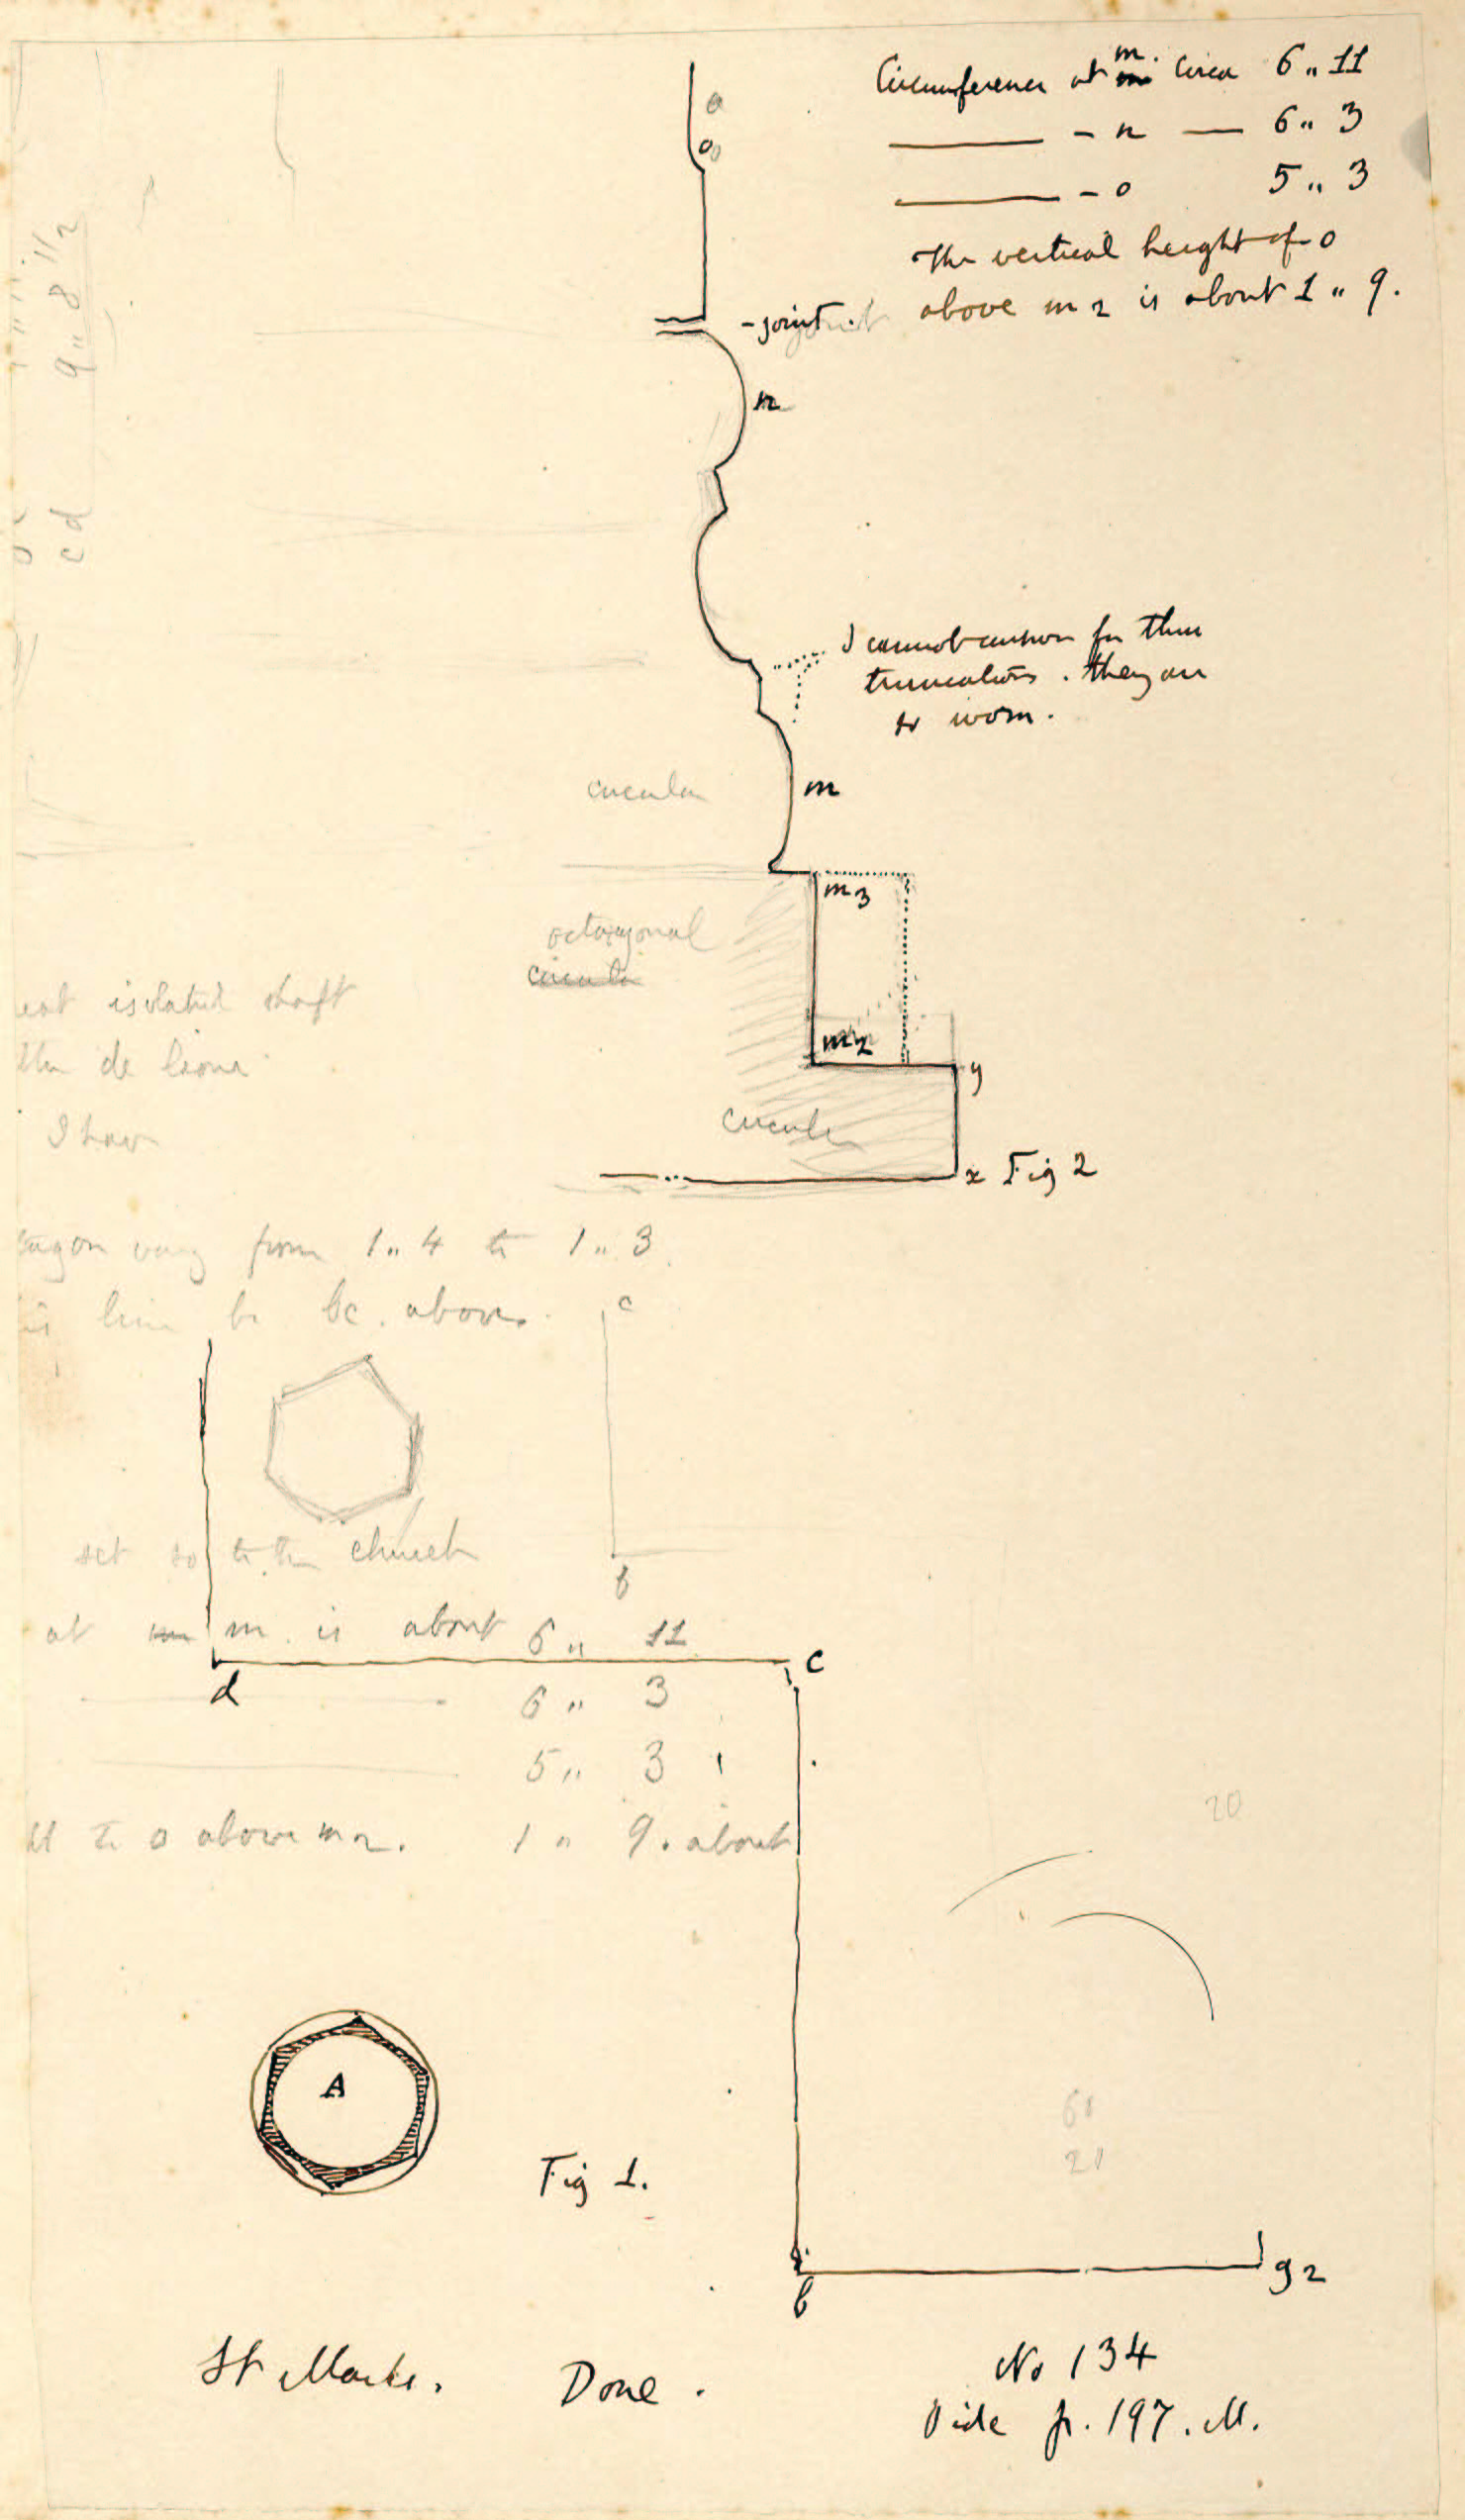 Circumference at m. Circa 6 " 11
— n — 6 " 3
— o 5 " 3
The vertical height of o
above m 2 is about 1 " 9.
o
o
- joint.
9 " 8 1/2
c d
n
I cannot answer for these
truncations. they are
so worn.
circular
m
m 3
octagonal
circular
isolated shaft
m 2
de
y
circular
I have
x Fig 2
vary from 1 " 4 to 1 " 3.
line b bc. above.
c
set so to the church
b
at m m. is about 6 " 11
d
c
6 " 3
5 " 3
20
to o above m 2. 1 " 9. about
A
Fig 1.
b
g 2
St Marks. Done.
No 134
Vide p. 197. M.